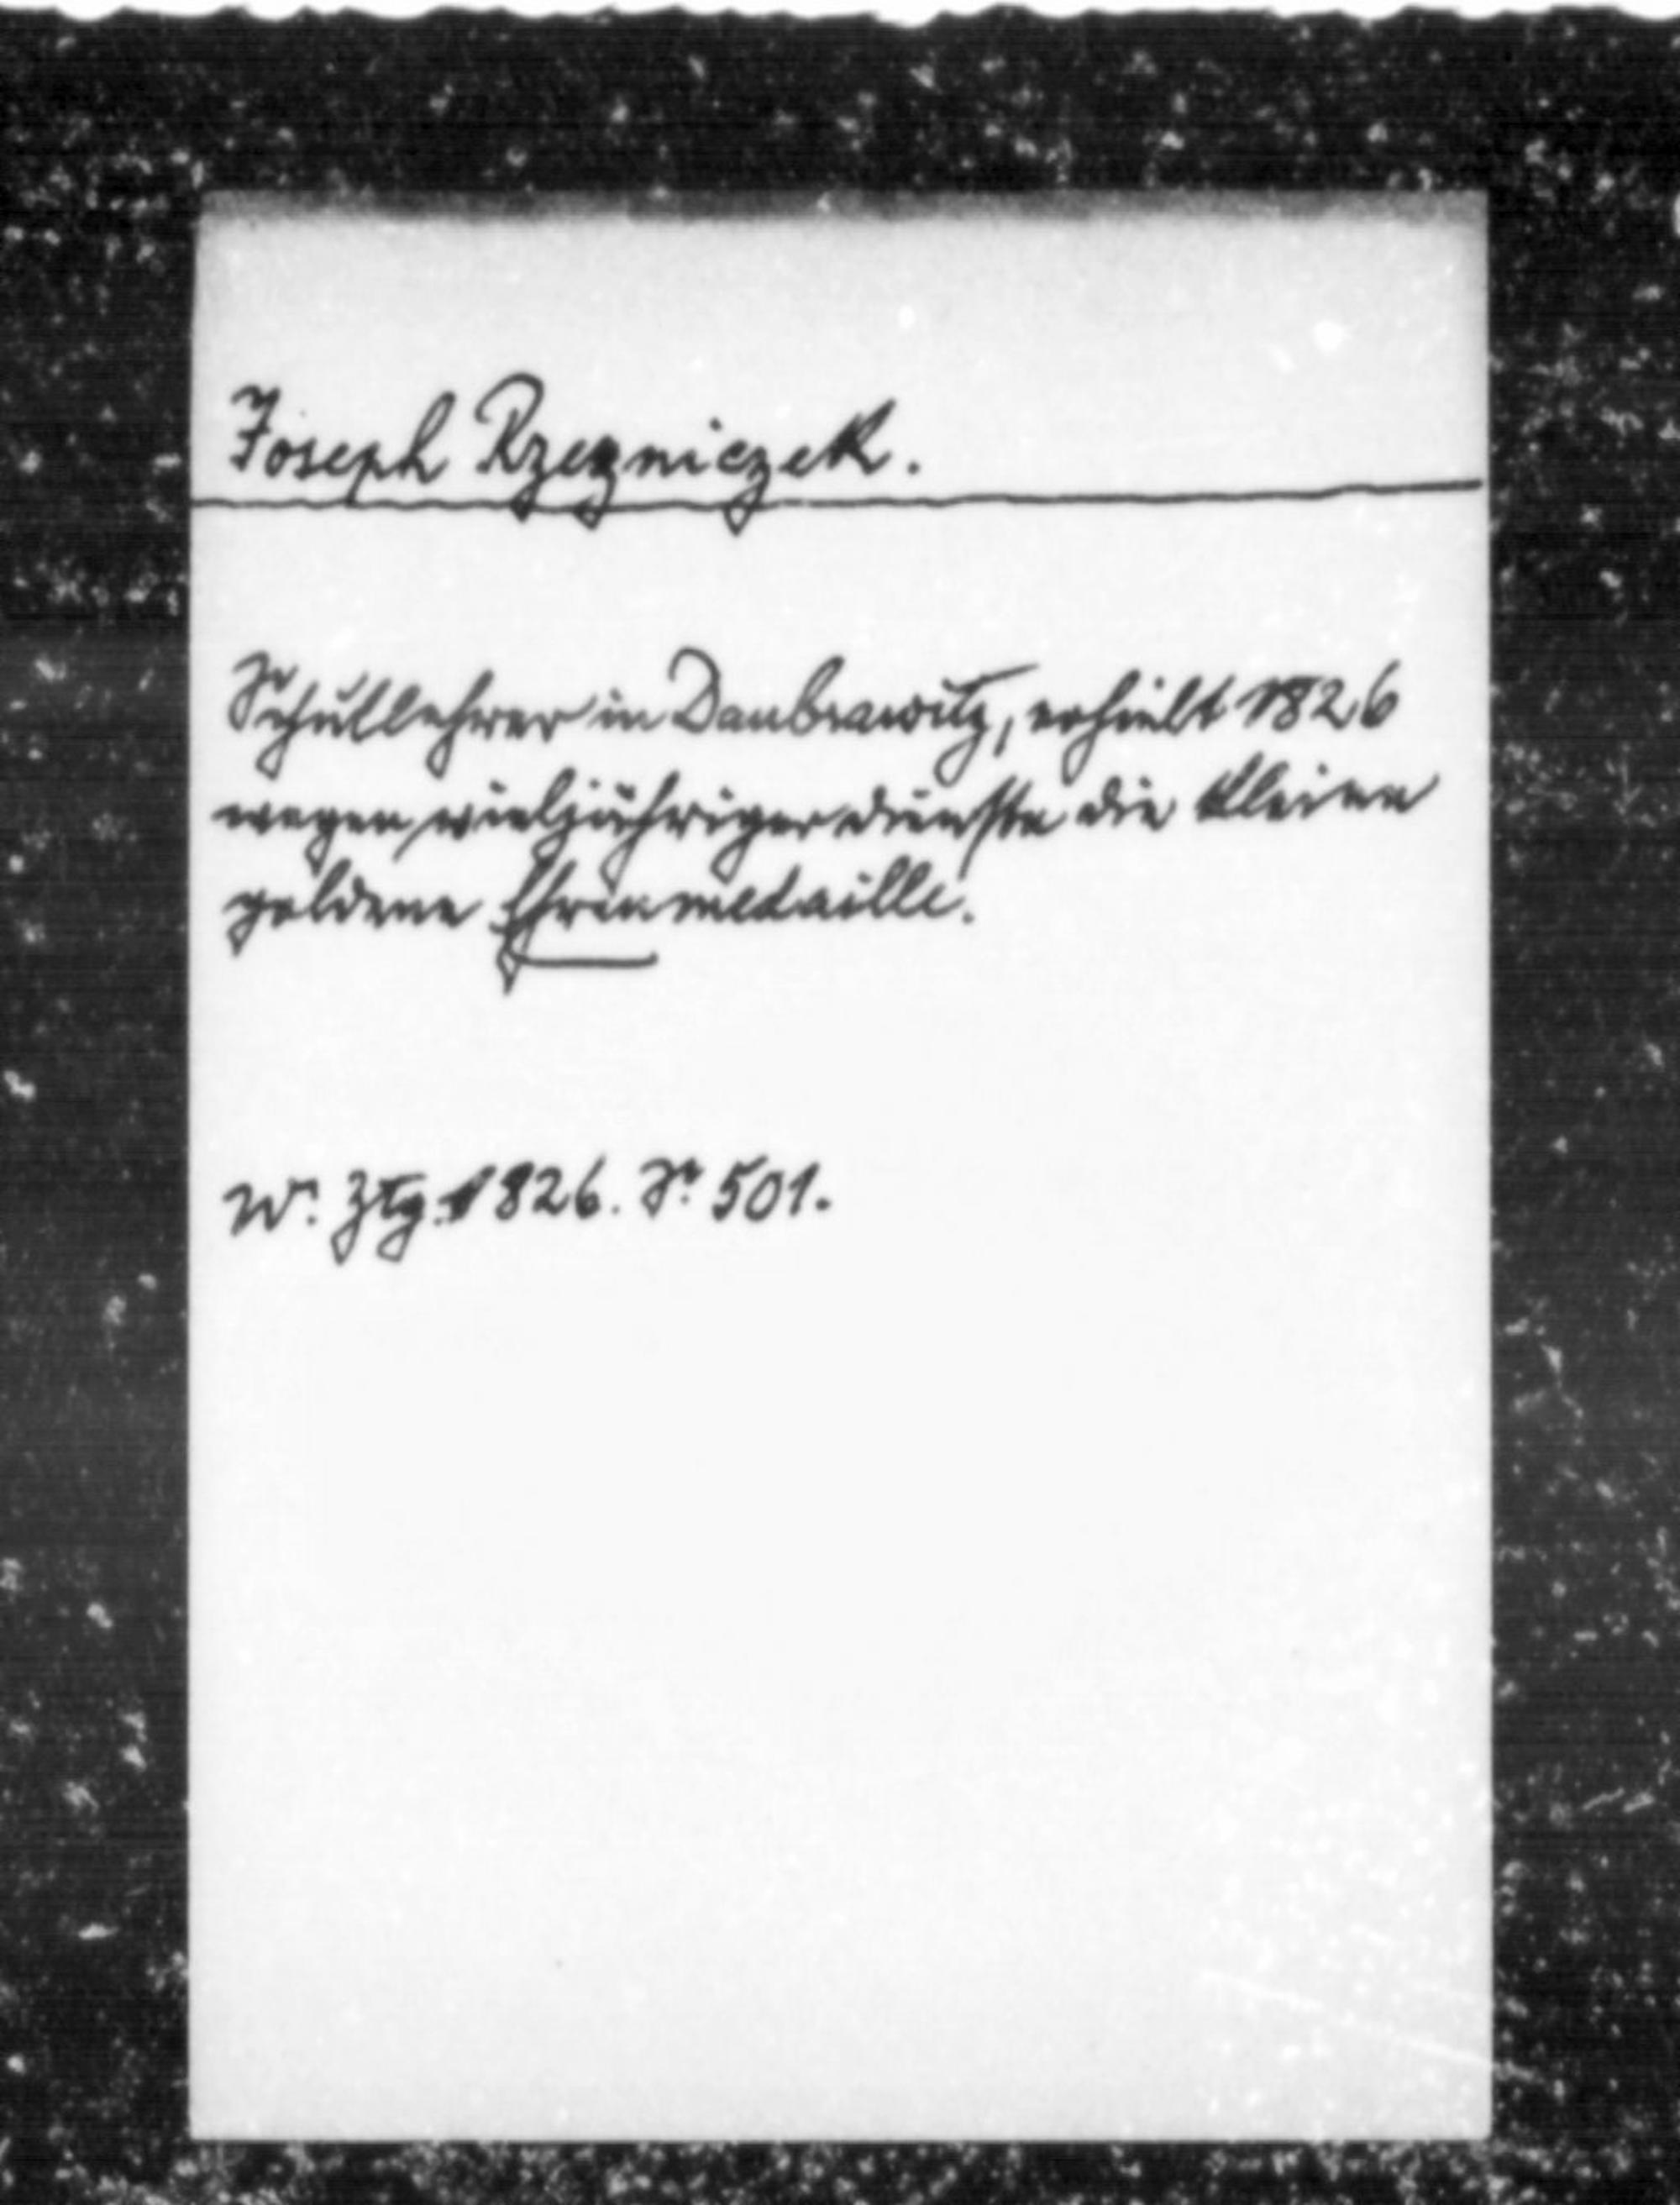 Joseph Rzezniczek.
Schullehrer in Daubrawitz, erhielt 1826
wegen vieljähriger dienste die kleine
goldene Ehrenmedaille.
Wr. Ztg. 1826. Sr. 501.